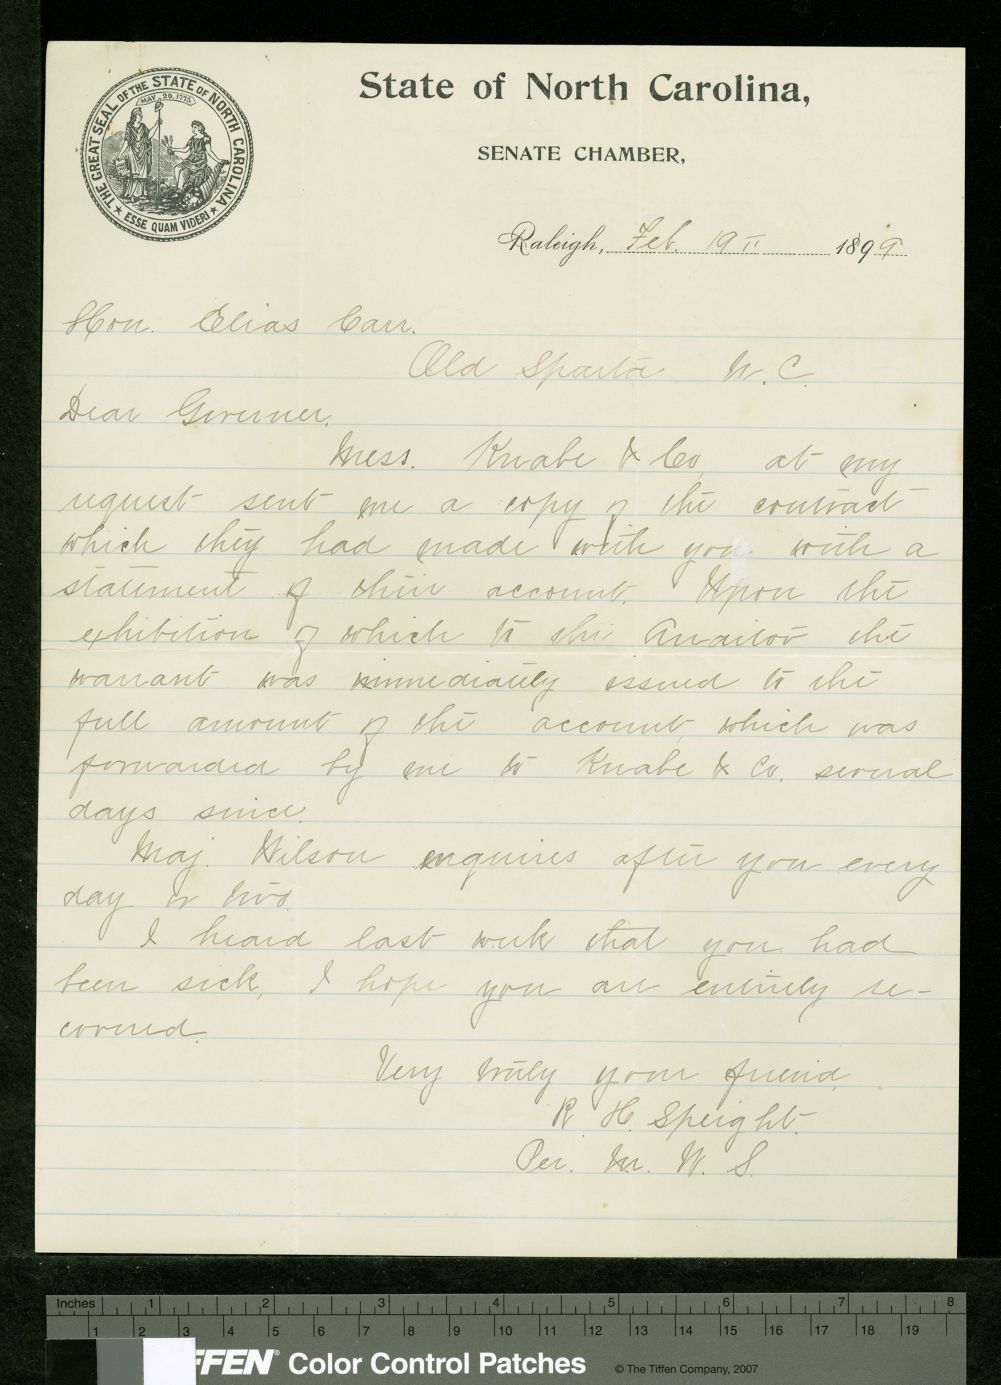 THE GREAT SEAL OF THE STATE OF NORTH CAROLINA
MAY 20, 1775
★ ESSE QUAM VIDERI ★
State of North Carolina,
SENATE CHAMBER,
Raleigh, Feb. 19th 1899
Hon. Elias Carr.
Old Sparta N. C.
Dear Governer.
Mess. Knabe & Co, at my
request sent me a copy of the contract
which they had made with you with a
statement of their account. Upon the
exhibition of which to the Auditor the
warrant was immediately issued to the
full amount of the account, which was
forwarded by me to Knabe & Co. several
days since.
Maj. Wilson enquires after you every
day or two.
I heard last week that you had
been sick, I hope you are entirely re-
covered.
Very truly your friend,
R. H. Speight.
Per. M. W. S.
Inches 1 2 3 4 5 6 7 8
1 2 3 4 5 6 7 8 9 10 11 12 13 14 15 16 17 18 19
FFEN® Color Control Patches © The Tiffen Company, 2007